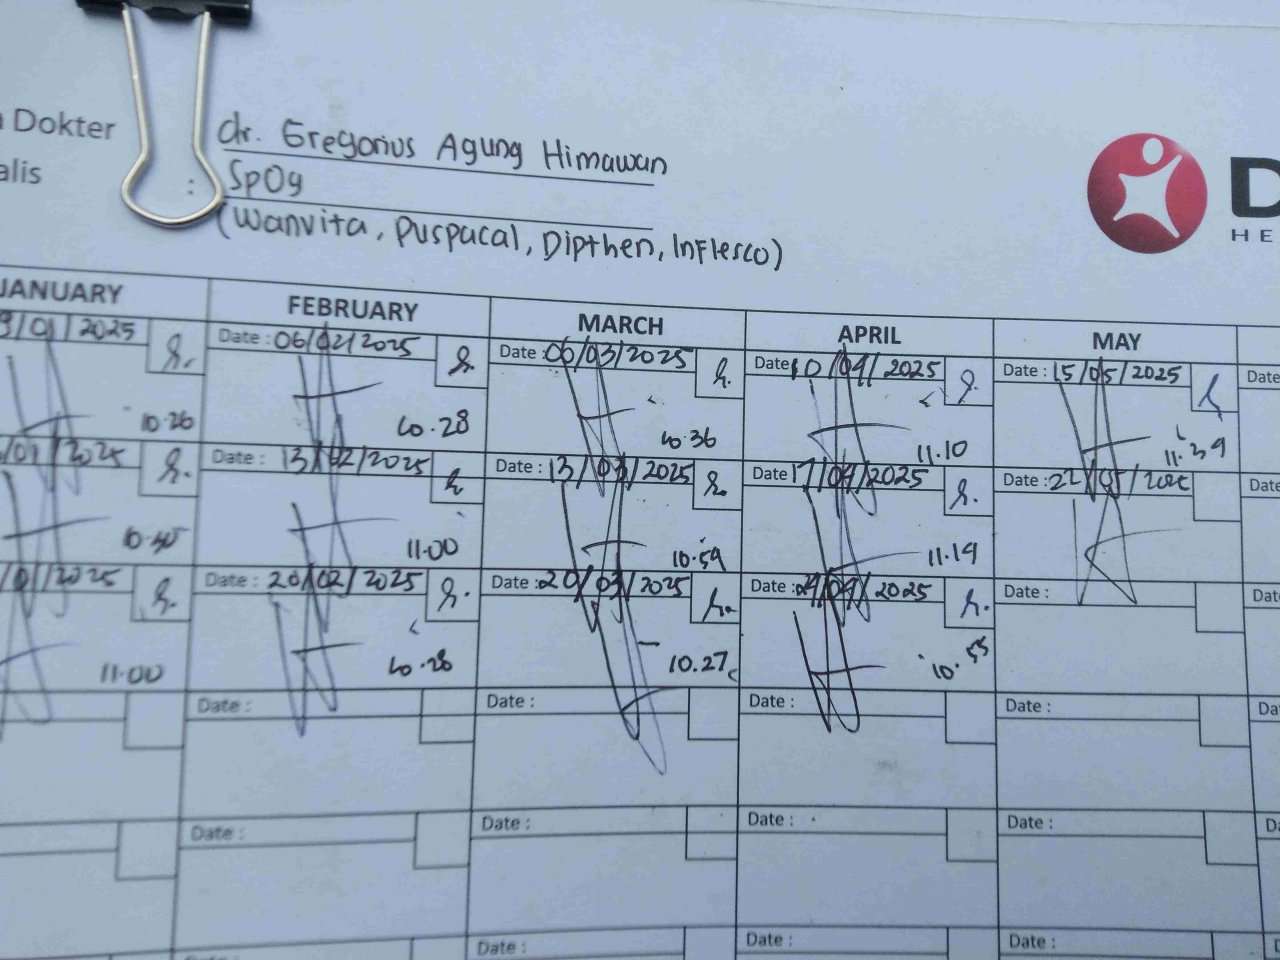 Dokter
dr. Gregorius Agung Himawan
alis : SpOg
(Wanvita, Puspacal, Dipthen, Inflesco)
D
HE
JANUARY FEBRUARY MARCH APRIL MAY
9/01/2025 Date : 06/02/2025 Date : 06/03/2025 Date 10/04/2025 Date : 15/05/2025 Date
10.26 10.28 10.36 11.10 11.39
/01/2025 Date : 13/02/2025 Date : 13/03/2025 Date 17/04/2025 Date : 22/05/ Date
10.45 11.00 10.59 11.19
/01/2025 Date : 20/02/2025 Date : 20/03/2025 Date : 24/04/2025 Date : Dat
11.00 10.28 10.27 10.55
Date : Date : Date : Date : Da
Date : Date : Date : Date : Da
Date : Date : Date : D